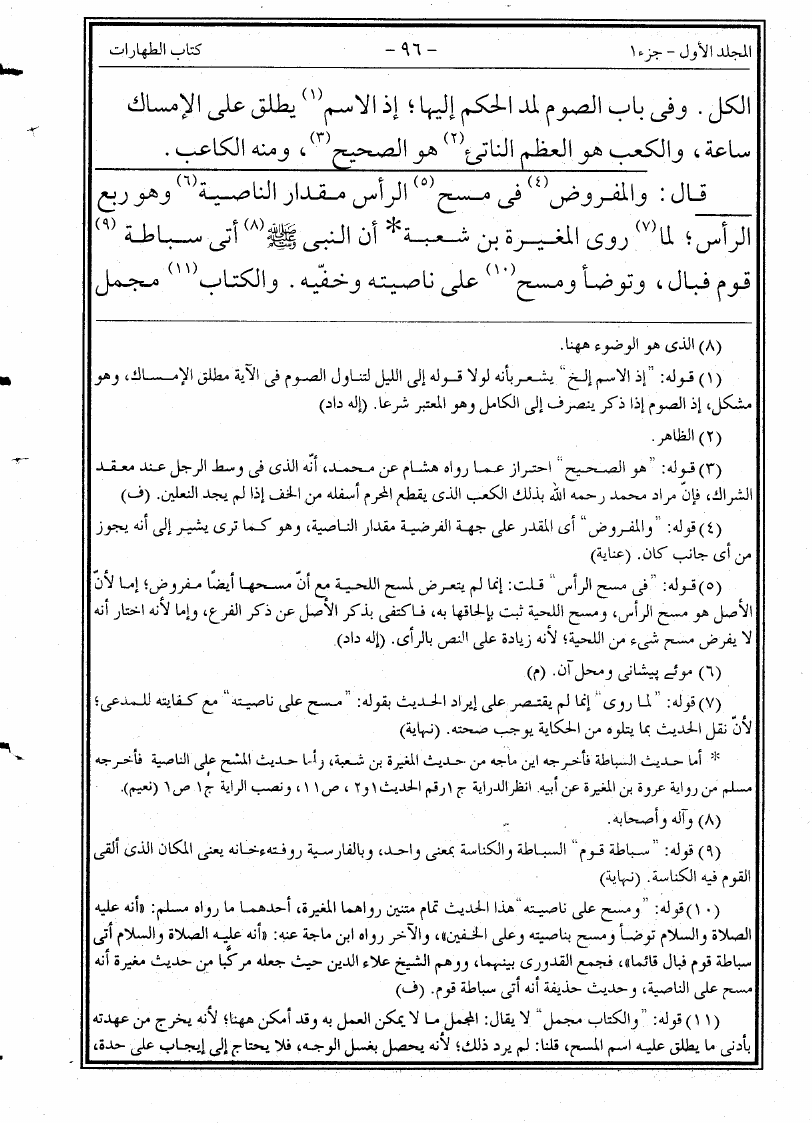 المجلد الأول - جزء ١ - ٩٦ - كتاب الطهارات
الكل. وفى باب الصوم لمد الحكم إليها؛ إذ الاسم(١) يطلق على الإمساك
ساعة، والكعب هو العظم الناتئ(٢) هو الصحيح(٣)، ومنه الكاعب.
قال: والمفروض(٤) فى مسح(٥) الرأس مقدار الناصية(٦) وهو ربع
الرأس؛ لما(٧) روى المغيرة بن شعبة* أن النبى ﷺ(٨) أتى سباطة(٩)
قوم فبال، وتوضأ ومسح(١٠) على ناصيته وخفّيه. والكتاب(١١) مجمل
(٨) الذى هو الوضوء ههنا.
(١) قوله: "إذ الاسم إلخ" يشعر بأنه لولا قوله إلى الليل لتناول الصوم فى الآية مطلق الإمساك، وهو
مشكل، إذ الصوم إذا ذكر ينصرف إلى الكامل وهو المعتبر شرعا. (إله داد)
(٢) الظاهر.
(٣) قوله: "هو الصحيح" احتراز عما رواه هشام عن محمد، أنّه الذى فى وسط الرجل عند معقد
الشراك، فإنّ مراد محمد رحمه الله بذلك الكعب الذى يقطع المحرم أسفله من الخف إذا لم يجد النعلين. (ف)
(٤) قوله: "والمفروض" أى المقدر على جهة الفرضية مقدار الناصية، وهو كما ترى يشير إلى أنه يجوز
من أى جانب كان. (عناية)
(٥) قوله: "فى مسح الرأس" قلت: إنما لم يتعرض لمسح اللحية مع أنّ مسحها أيضًا مفروض؛ إما لأنّ
الأصل هو مسح الرأس، ومسح اللحية ثبت بإلحاقها به، فاكتفى بذكر الأصل عن ذكر الفرع، وإما لأنه اختار أنه
لا يفرض مسح شىء من اللحية؛ لأنه زيادة على النص بالرأى. (إله داد).
(٦) موئے پیشانی ومحل آن. (م)
(٧) قوله: "لما روى" إنما لم يقتصر على إيراد الحديث بقوله: "مسح على ناصيته" مع كفايته للمدعى؛
لأنّ نقل الحديث بما يتلوه من الحكاية يوجب صحته. (نهاية)
* أما حديث السباطة فأخرجه ابن ماجه من حديث المغيرة بن شعبة، وأما حديث المسح على الناصية فأخرجه
مسلم من رواية عروة بن المغيرة عن أبيه. انظر الدراية ج١ رقم الحديث ١و٢، ص١١، ونصب الراية ج١ ص١ (نعيم).
(٨) وآله وأصحابه.
(٩) قوله: "سباطة قوم" السباطة والكناسة بمعنى واحد، وبالفارسية روفته‌خانه يعنى المكان الذى ألقى
القوم فيه الكناسة. (نهاية)
(١٠) قوله: "ومسح على ناصيته" هذا الحديث تمام متنين رواهما المغيرة، أحدهما ما رواه مسلم: «أنه عليه
الصلاة والسلام توضأ ومسح بناصيته وعلى الخفين»، والآخر رواه ابن ماجة عنه: «أنه عليه الصلاة والسلام أتى
سباطة قوم فبال قائما»، فجمع القدورى بينهما، ووهم الشيخ علاء الدين حيث جعله مركّبا من حديث مغيرة أنه
مسح على الناصية، وحديث حذيفة أنه أتى سباطة قوم. (ف)
(١١) قوله: "والكتاب مجمل" لا يقال: المجمل ما لا يمكن العمل به وقد أمكن ههنا؛ لأنه يخرج من عهدته
بأدنى ما يطلق عليه اسم المسح، قلنا: لم يرد ذلك؛ لأنه يحصل بغسل الوجه، فلا يحتاج إلى إيجاب على حدة،